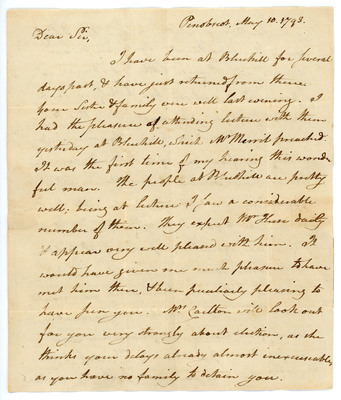 Penobscot, May 10. 1798.
Dear Sir,
I have been at Bluehill for several
days past, & have just returned from there.
Your Sister & family were well last evening. I
had the pleasure of attending lecture with them
yesterday at Bluehill, which Mr Merril preached.
It was the first time of my hearing this wonder-
ful man. The people at Bluehill are pretty
well; being at lecture I saw a considerable
number of them. They expect Mr. daily
& appear very well pleased with him. It
would have given me much pleasure to have
met him there, & been peculiarly pleasing to
have seen you. Mrs. Carlton will look out
for you very strongly about election, as she
thinks your delays already almost inexcuseable,
as you have no family to detain you.